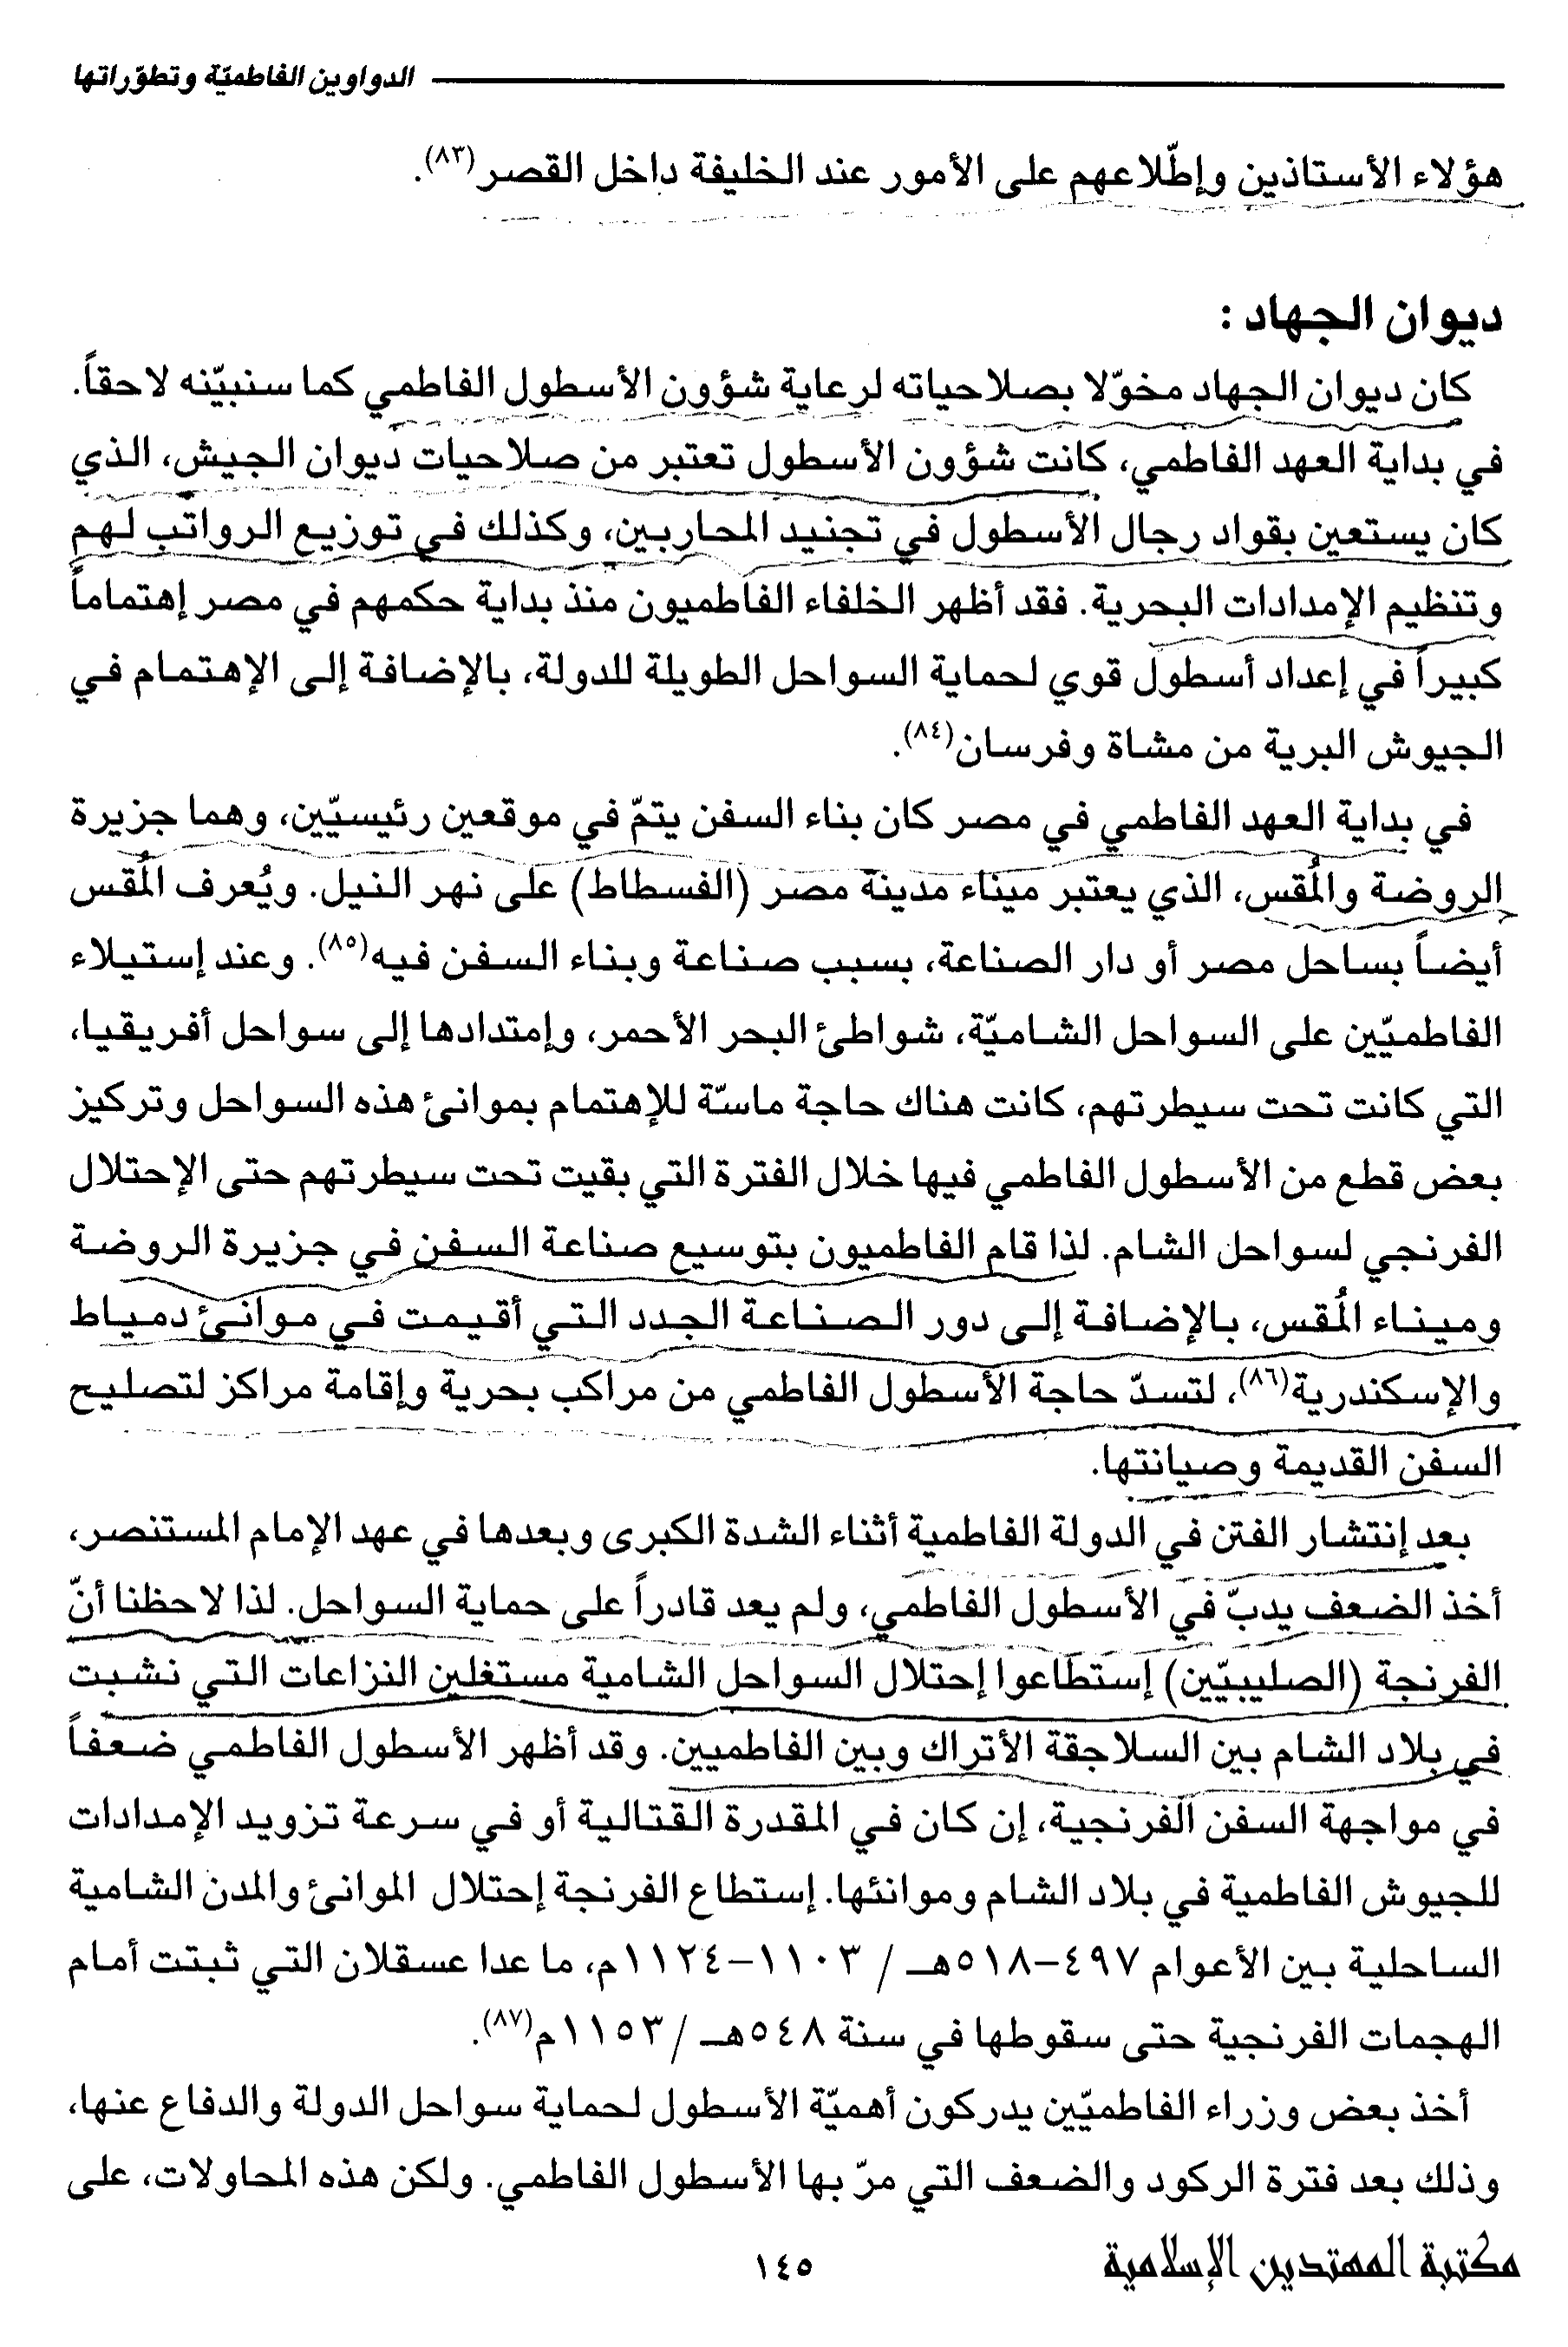 الدواوين الفاطميّة وتطوّراتها
هؤلاء الأستاذين وإطّلاعهم على الأمور عند الخليفة داخل القصر(٨٣).
ديوان الجهاد :
كان ديوان الجهاد مخوّلا بصلاحياته لرعاية شؤون الأسطول الفاطمي كما سنبيّنه لاحقاً.
في بداية العهد الفاطمي، كانت شؤون الأسطول تعتبر من صلاحيات ديوان الجيش، الذي
كان يستعين بقواد رجال الأسطول في تجنيد المحاربين، وكذلك في توزيع الرواتب لهم
وتنظيم الإمدادات البحرية. فقد أظهر الخلفاء الفاطميون منذ بداية حكمهم في مصر إهتماماً
كبيراً في إعداد أسطول قوي لحماية السواحل الطويلة للدولة، بالإضافة إلى الإهتمام في
الجيوش البرية من مشاة وفرسان(٨٤).
في بداية العهد الفاطمي في مصر كان بناء السفن يتمّ في موقعين رئيسيّين، وهما جزيرة
الروضة والمُقس، الذي يعتبر ميناء مدينة مصر (الفسطاط) على نهر النيل. ويُعرف المُقس
أيضاً بساحل مصر أو دار الصناعة، بسبب صناعة وبناء السفن فيه(٨٥). وعند إستيلاء
الفاطميّين على السواحل الشاميّة، شواطئ البحر الأحمر، وإمتدادها إلى سواحل أفريقيا،
التي كانت تحت سيطرتهم، كانت هناك حاجة ماسّة للإهتمام بموانئ هذه السواحل وتركيز
بعض قطع من الأسطول الفاطمي فيها خلال الفترة التي بقيت تحت سيطرتهم حتى الإحتلال
الفرنجي لسواحل الشام. لذا قام الفاطميون بتوسيع صناعة السفن في جزيرة الروضة
وميناء المُقس، بالإضافة إلى دور الصناعة الجدد التي أقيمت في موانئ دمياط
والإسكندرية(٨٦)، لتسدّ حاجة الأسطول الفاطمي من مراكب بحرية وإقامة مراكز لتصليح
السفن القديمة وصيانتها.
بعد إنتشار الفتن في الدولة الفاطمية أثناء الشدة الكبرى وبعدها في عهد الإمام المستنصر،
أخذ الضعف يدبّ في الأسطول الفاطمي، ولم يعد قادراً على حماية السواحل. لذا لاحظنا أنّ
الفرنجة (الصليبيّين) إستطاعوا إحتلال السواحل الشامية مستغلين النزاعات التي نشبت
في بلاد الشام بين السلاجقة الأتراك وبين الفاطميين. وقد أظهر الأسطول الفاطمي ضعفاً
في مواجهة السفن الفرنجية، إن كان في المقدرة القتالية أو في سرعة تزويد الإمدادات
للجيوش الفاطمية في بلاد الشام وموانئها. إستطاع الفرنجة إحتلال الموانئ والمدن الشامية
الساحلية بين الأعوام ٤٩٧-٥١٨هـ / ١١٠٣-١١٢٤م، ما عدا عسقلان التي ثبتت أمام
الهجمات الفرنجية حتى سقوطها في سنة ٥٤٨هـ /١١٥٣م(٨٧).
أخذ بعض وزراء الفاطميّين يدركون أهميّة الأسطول لحماية سواحل الدولة والدفاع عنها،
وذلك بعد فترة الركود والضعف التي مرّ بها الأسطول الفاطمي. ولكن هذه المحاولات، على
مكتبة المهتدين الإسلامية
١٤٥